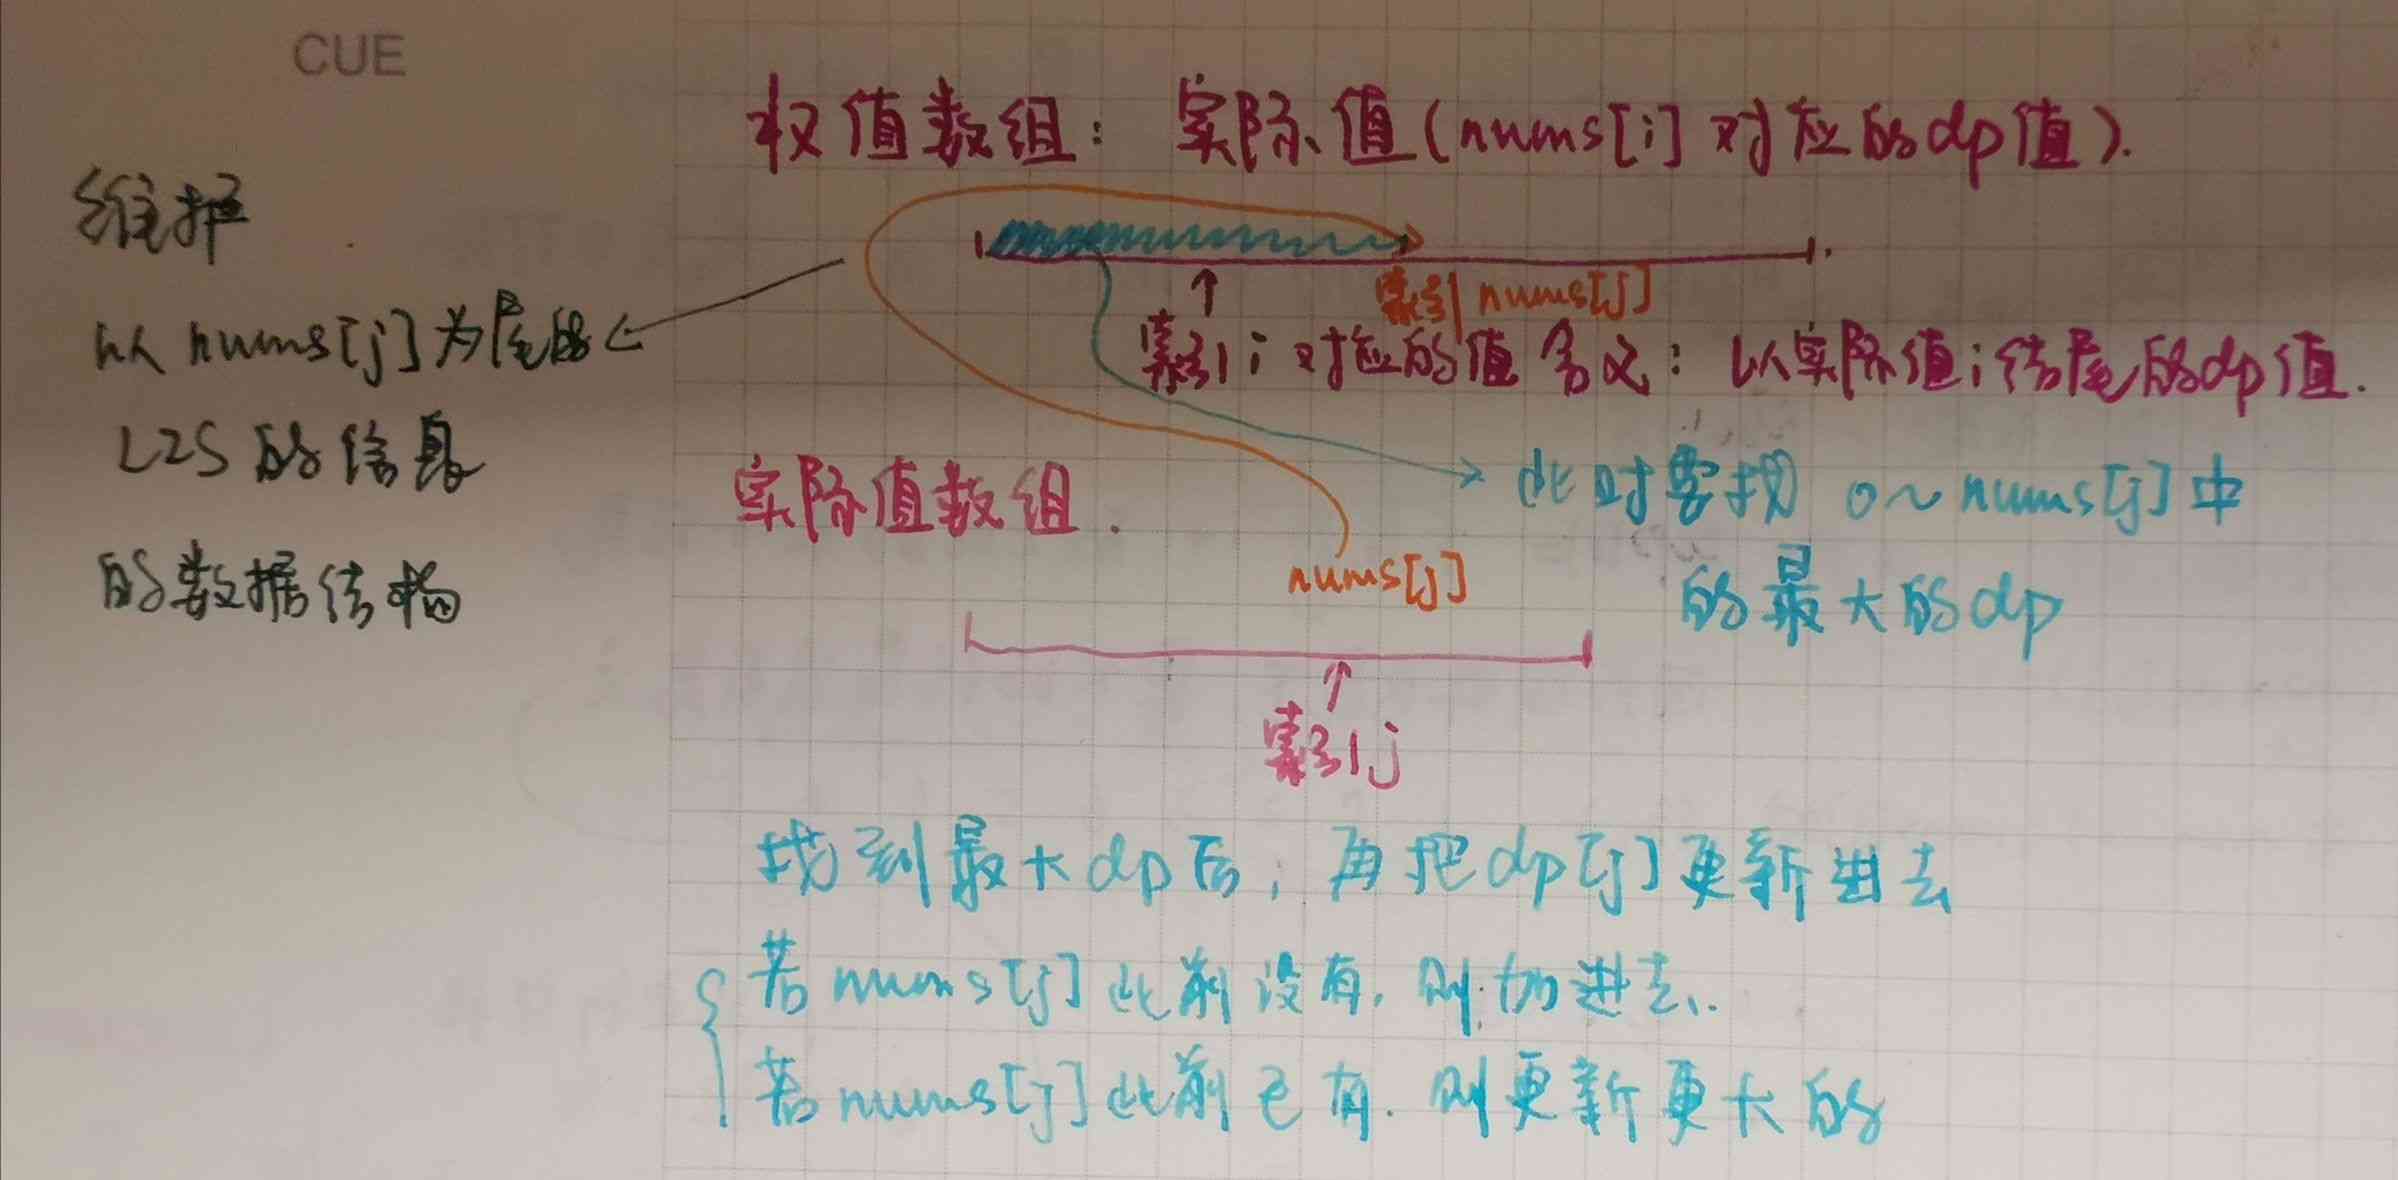 CUE
权值数组：实际值(nums[i]对应的dp值).
维护
以nums[j]为尾的
LIS的信息
的数据结构
索引nums[j]
索引i对应的值含义：以实际值i结尾的dp值.
实际值数组.
此时要找 0~nums[j]中
的最大的dp
nums[j]
索引j
找到最大dp后，再把dp[j]更新进去
若nums[j]此前没有，则加进去.
若nums[j]此前已有.则更新更大的